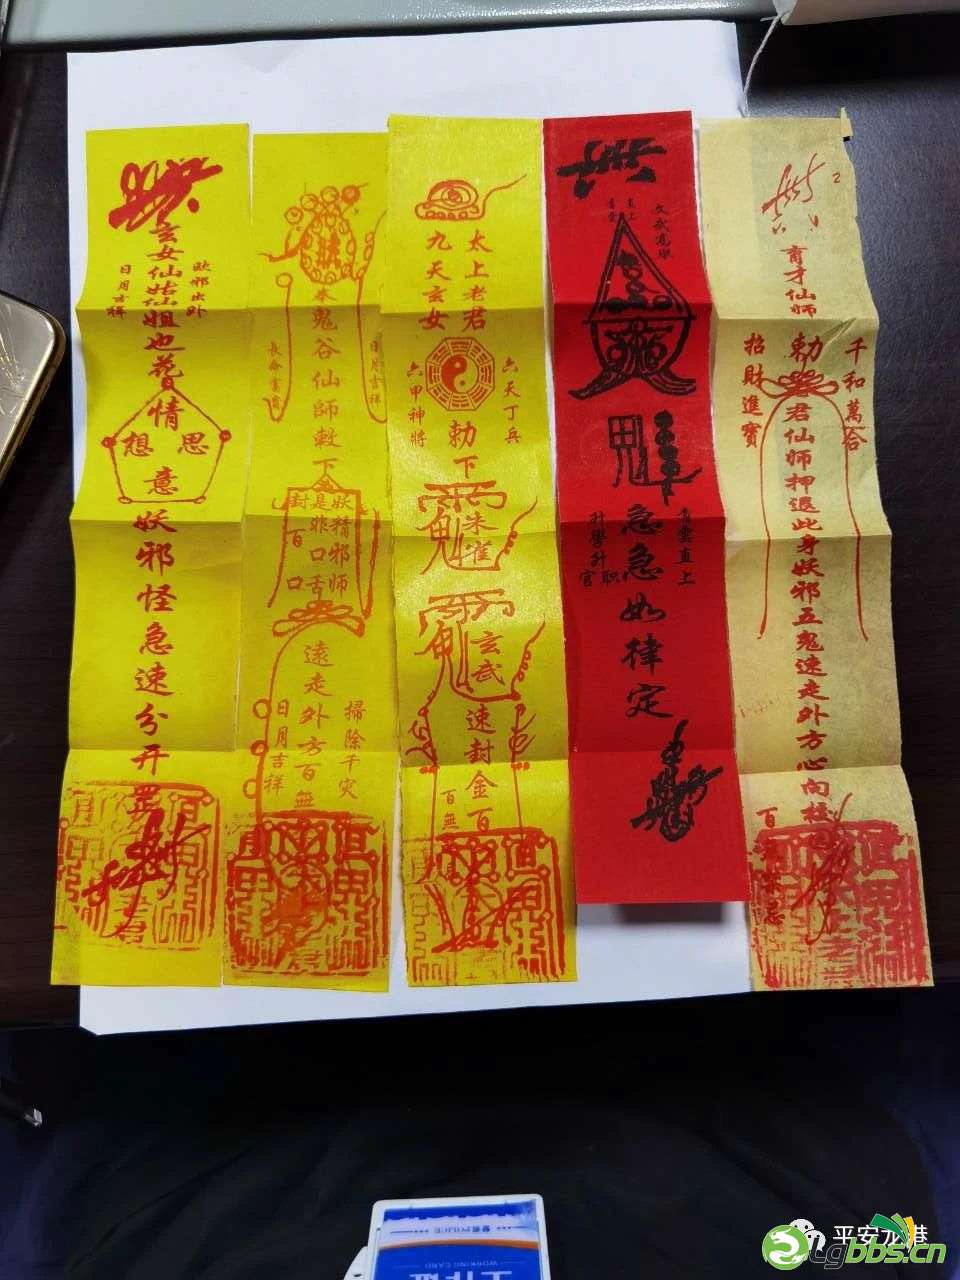 玄女仙姑仙姐也花
日月吉祥
情
想 思
意
妖邪怪急速分开
鬼谷仙師敕下
日月吉祥
長命富貴
妖精邪师
是非口舌
封百口
速走外方百無
掃除千灾
日月吉祥
太上老君
九天玄女
六天丁兵
六甲神將
勅下
朱雀
玄武
速封金百
百無
急急如律定
青雲直上
升學升官
职
育才仙師
勅
千和萬合
招財進寶
君仙师押退此身妖邪五鬼速走外方心向校
百無禁忌
平安龙港
lgbbs.cn
警察POLICE
WORKING CARD
工作证